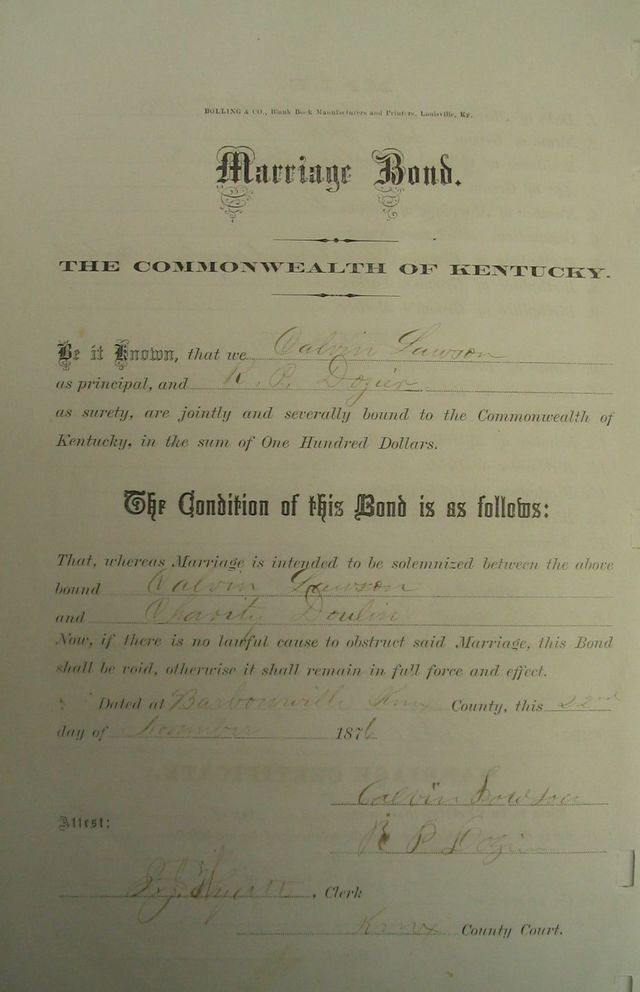 BOLLING & CO., Blank Book Manufacturers and Printers, Louisville, Ky.
Marriage Bond.
THE COMMONWEALTH OF KENTUCKY.
Be it Known, that we Calvin Lawson
as principal, and R. P. Dozier
as surety, are jointly and severally bound to the Commonwealth of
Kentucky, in the sum of One Hundred Dollars.
The Condition of this Bond is as follows:
That, whereas Marriage is intended to be solemnized between the above
bound Calvin Lawson
and Charity Doulin
Now, if there is no lawful cause to obstruct said Marriage, this Bond
shall be void, otherwise it shall remain in full force and effect.
Dated at Barbourville Knox County, this 22nd
day of November 1876
Calvin Lowson
Attest:
R P Dozier
, Clerk
Knox County Court.